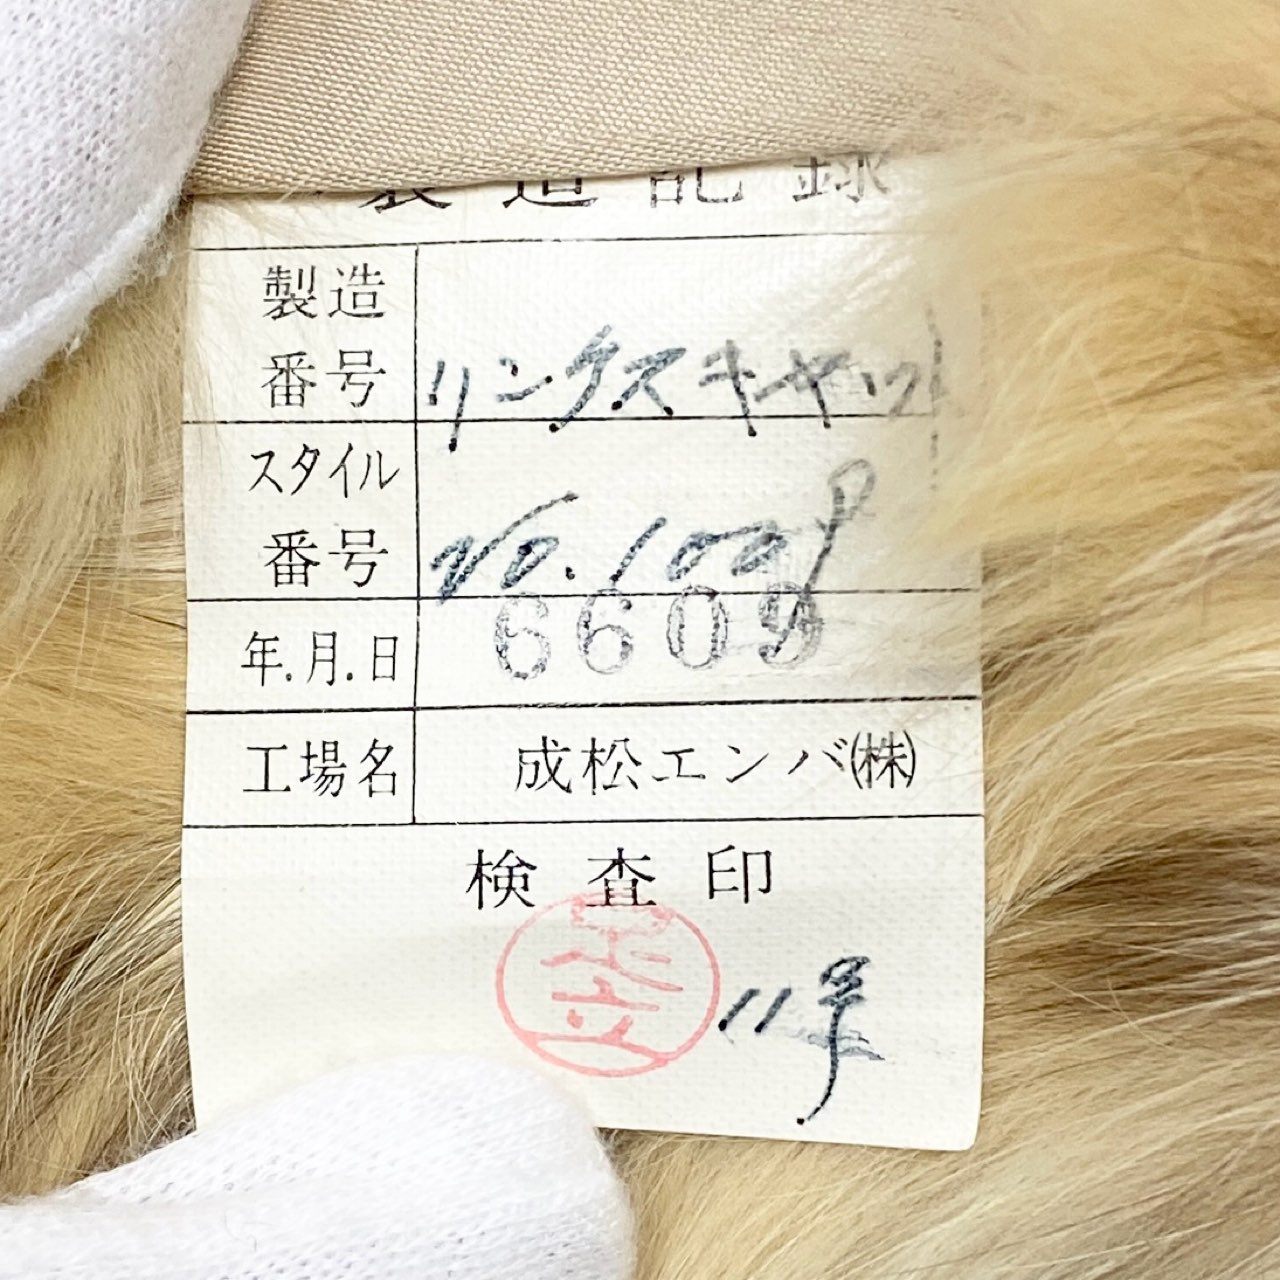 製造記録
製造
番号 リンクスキャット
スタイル
番号 No.1009
年.月.日 6609
工場名 成松エンバ㈱
検査印
足立 11号